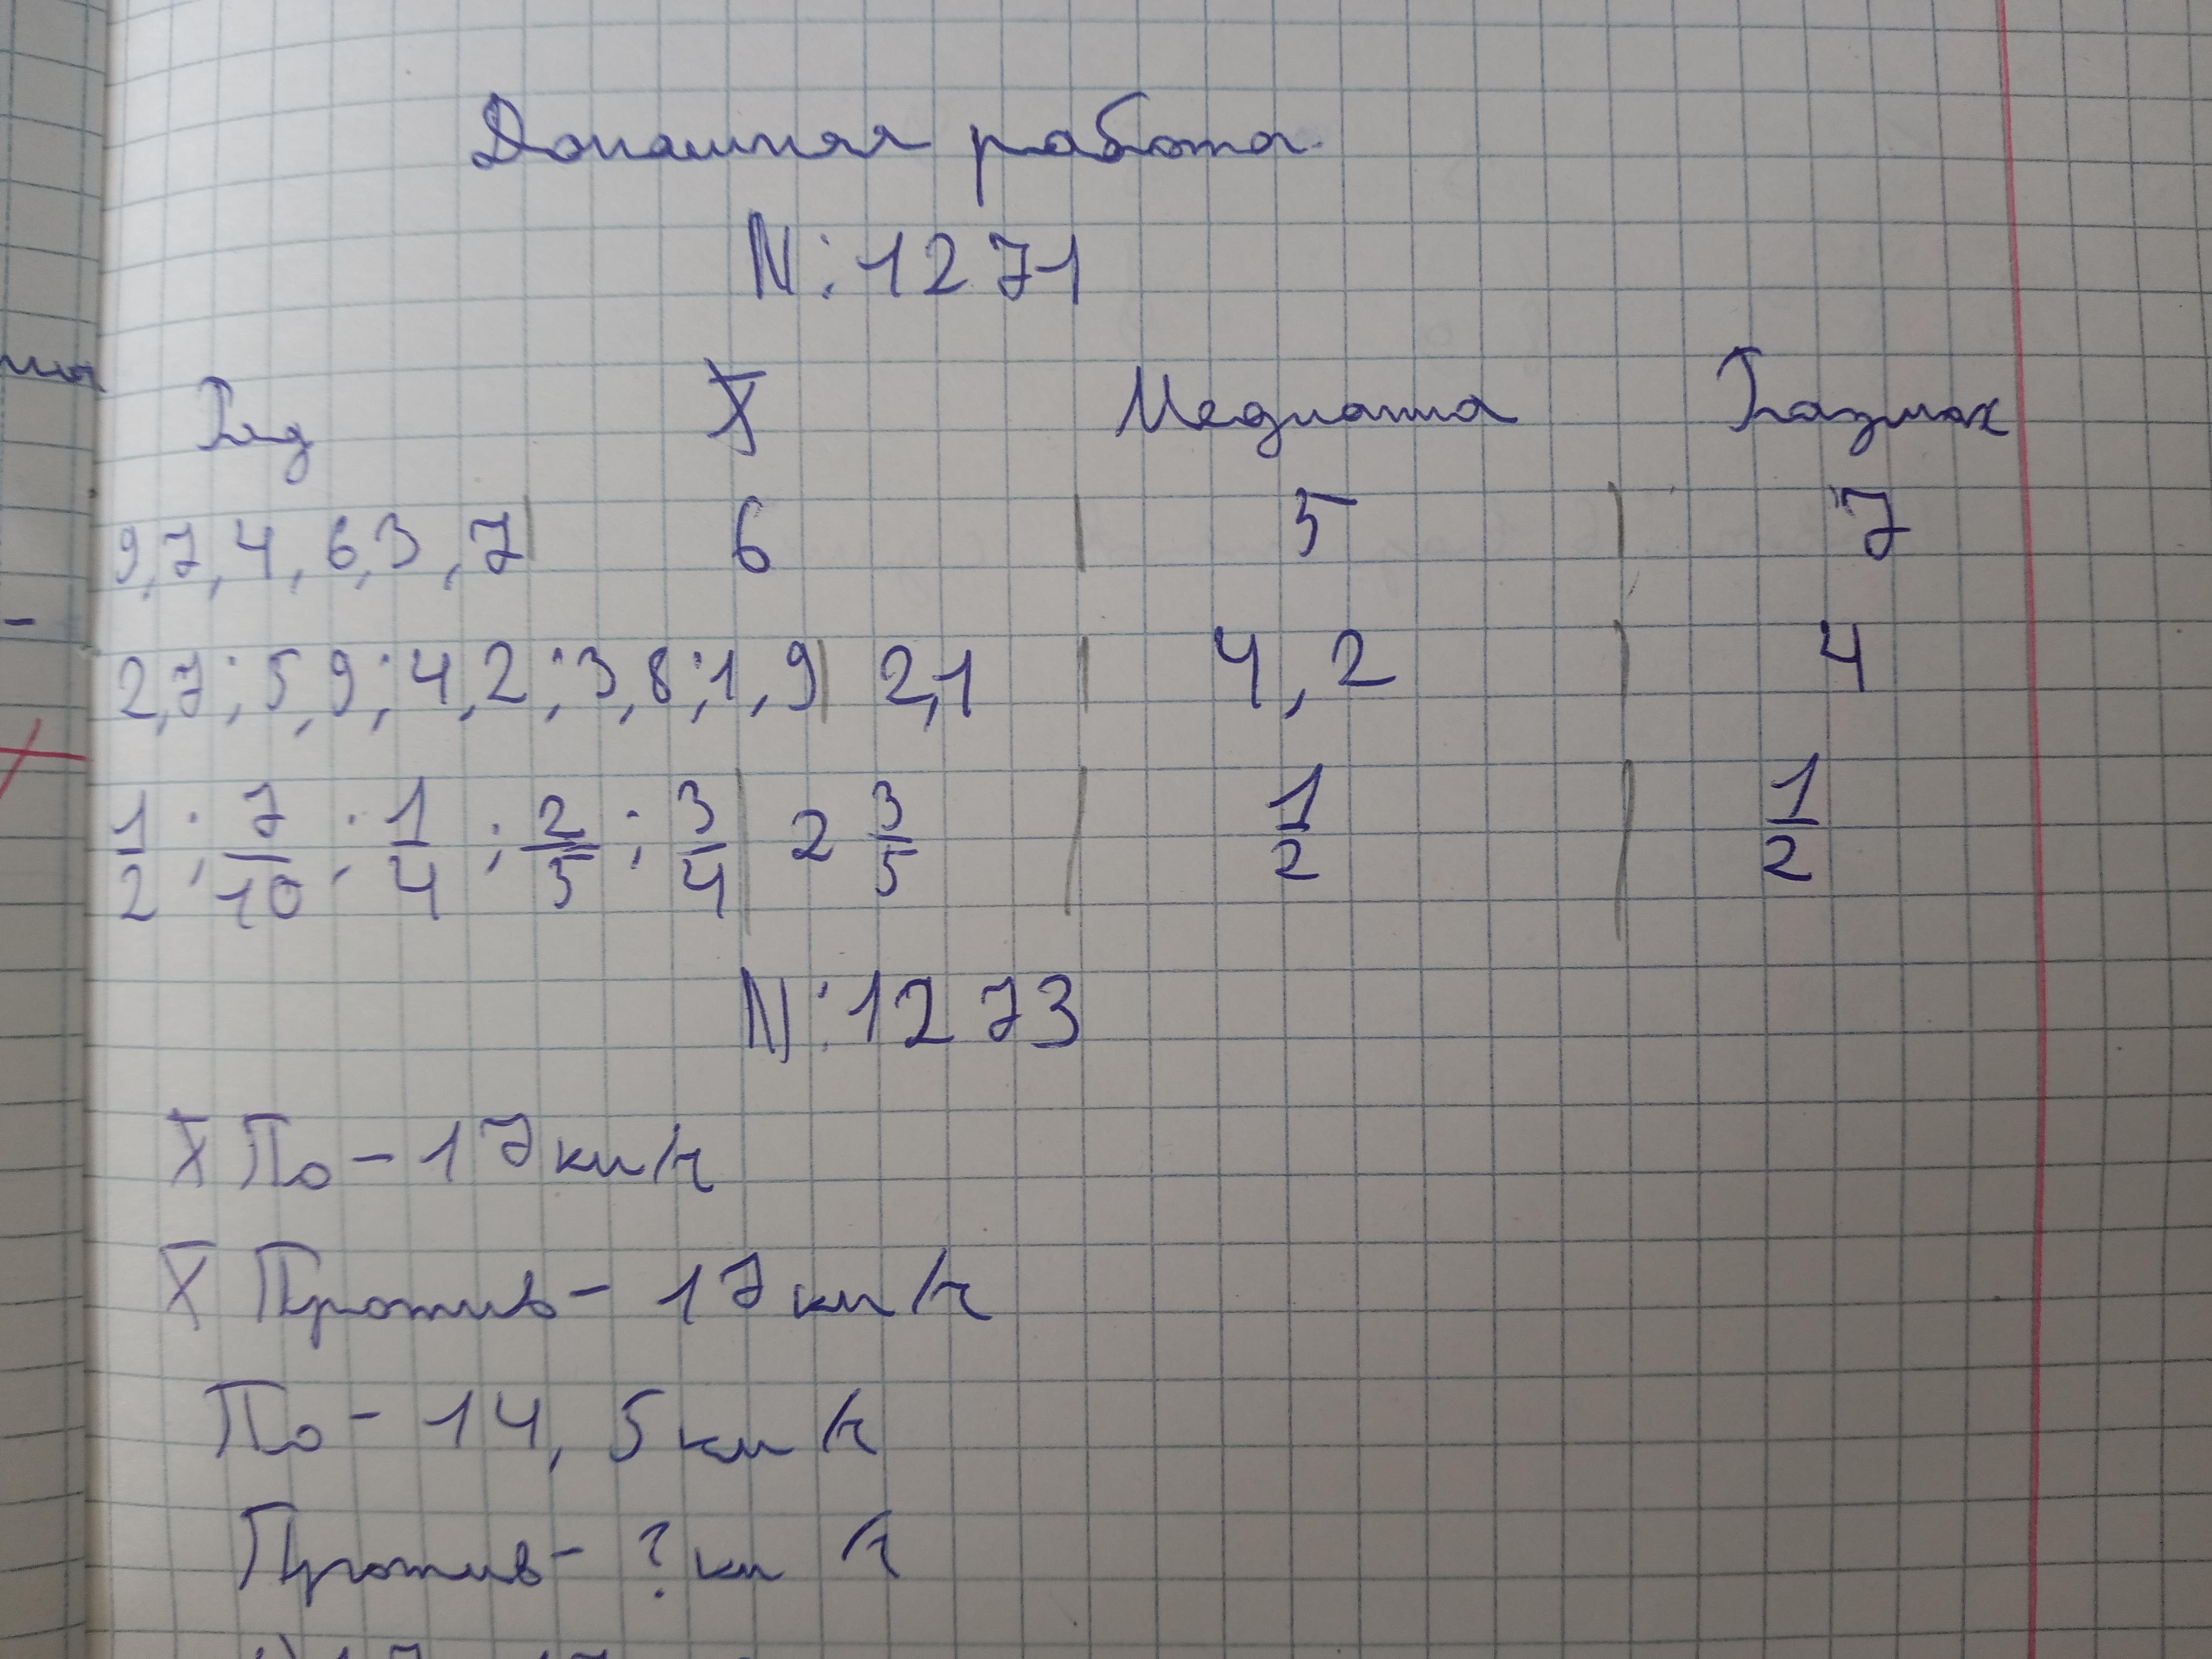 Домашняя работа.
N:1271
Ряд X̅ Медиана Размах
9,7,4,6,3,7 | 6 | 5 | 7
2,7;5,9;4,2;3,8;1,9 | 2,1 | 4,2 | 4
1/2; 7/10; 1/4; 2/5; 3/4 | 2 3/5 | 1/2 | 1/2
N:1273
X̅ По - 17 км/ч
X̅ Против - 17 км/ч
По - 14,5 км/ч
Против - ? км ч